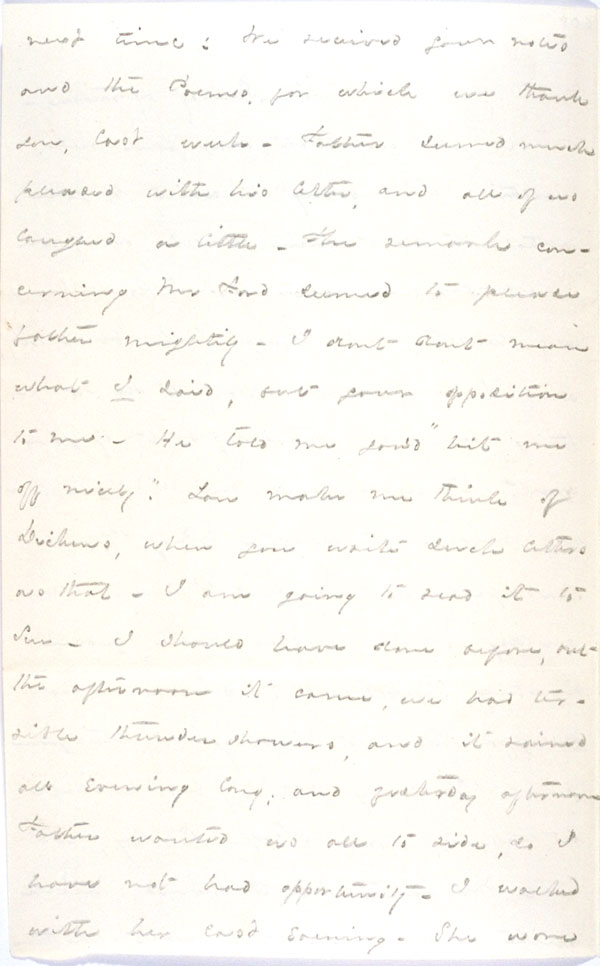 next time: We received your notes
and the Poems, for which we thank
you, last week - Father seemed much
pleased with his letter, and all of us
laughed a little - The remark con-
cerning Mr Ford seemed to please
father mightily - I dont dont mean
what I said, but your opposition
to me - He told me you'd "hit me
off nicely". You make me think of
Dickens, when you write such letters
as that - I am going to read it to
Sue - I should have done before, but
the afternoon it came, we had ter-
rible thunder showers, and it rained
all Evening long, and yesterday afternoon
Father wanted us all to ride, so I
have not had opportunity - I walked
with her last Evening - She wore